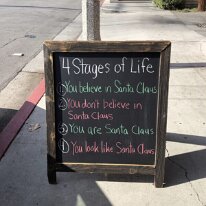 4 Stages of Life
① You believe in Santa Claus
② You don't believe in
Santa Claus
③ You are Santa Claus
④ You look like Santa Claus